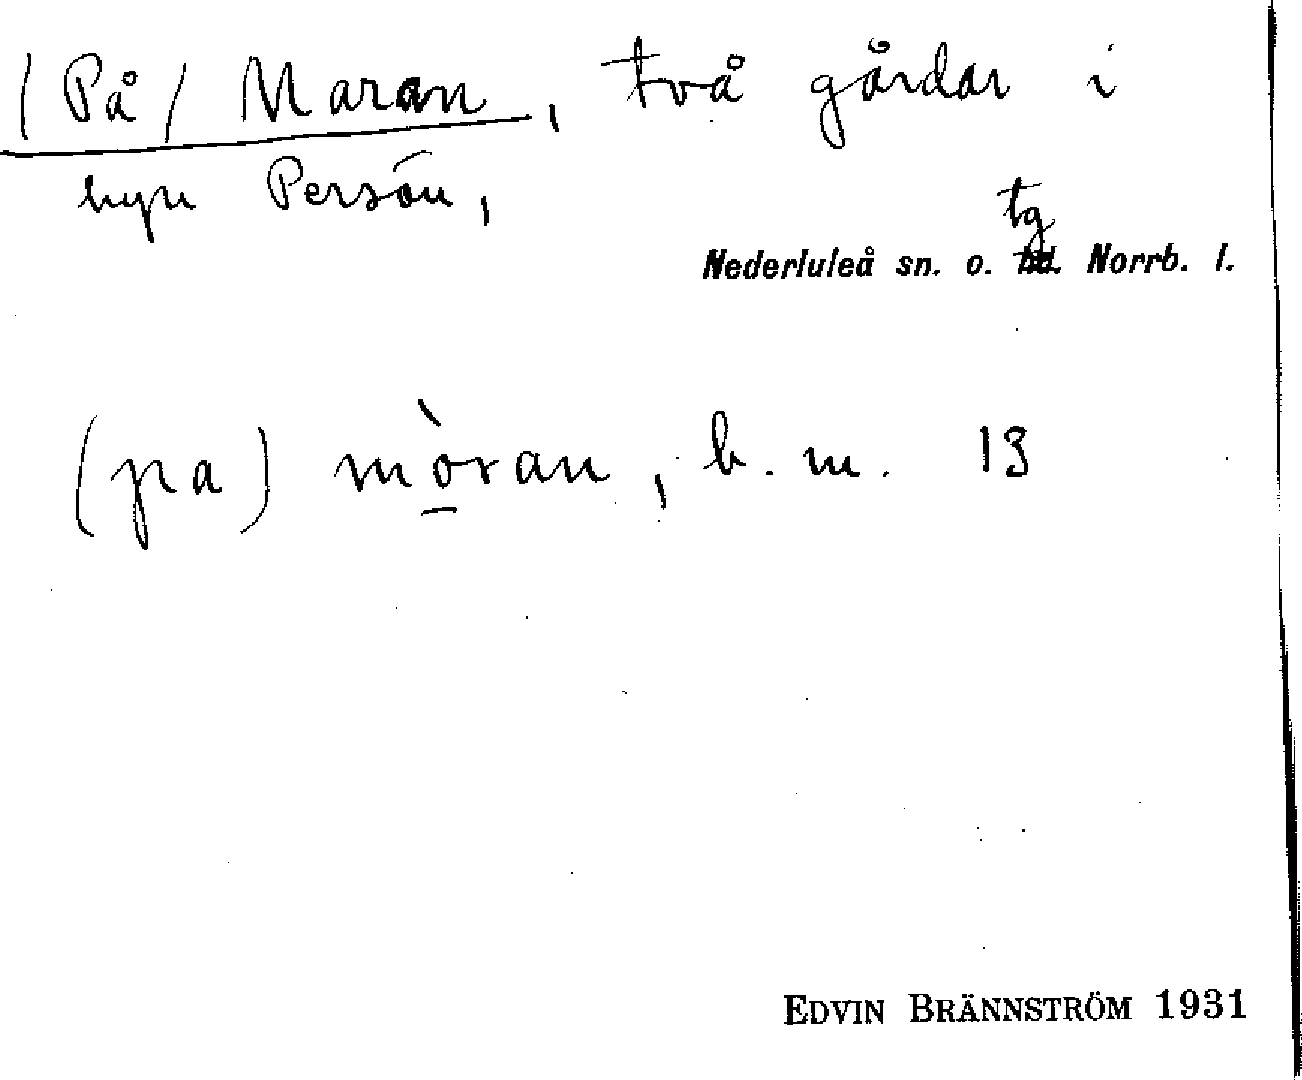 (På) Maran, två gårdar i
byn Persön,
tg
Nederluleå sn. o. hd. Norrb. l.
(pa) mòran, b. m. 13
EDVIN BRÄNNSTRÖM 1931